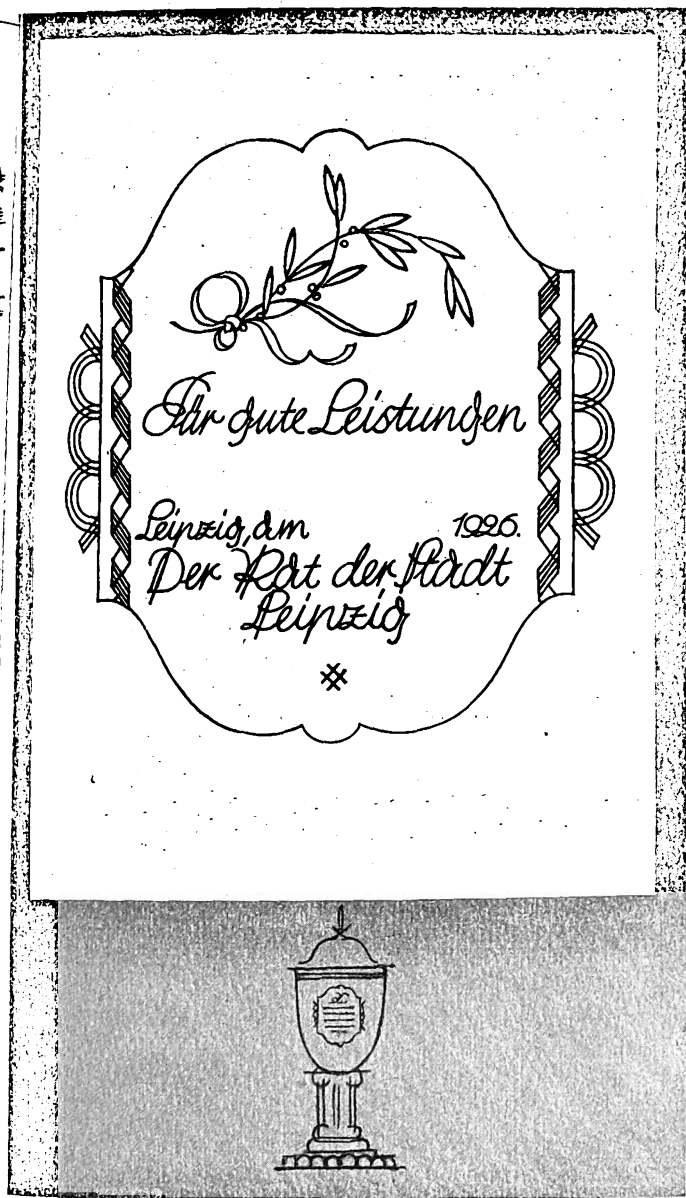 Für gute Leistungen
Leipzig, am 1926.
Der Rat der Stadt
Leipzig